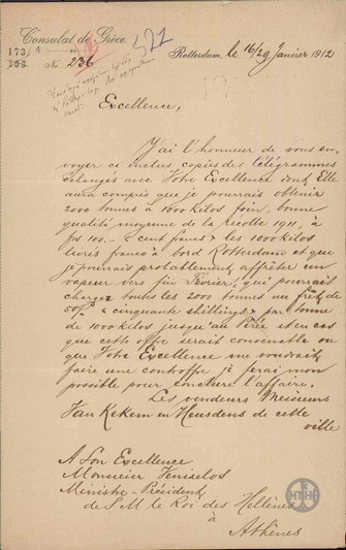 Consulat de Grèce.
Rotterdam, le 16/29 Janvier 1912
173/1
No. 236
521
Excellence,
J'ai l'honneur de vous en-
voyer ci inclus copies des télégrammes
échangés avec Votre Excellence dont Elle
aura compris que je pourrais obtenir
2000 tonnes à 1000 kilos foin, bonne
qualité moyenne de la récolte 1911, à
fcs 100.- "cent francs" les 1000 kilos
livrés franco à bord Rotterdam et que
je pourrais probablement affréter un
vapeur vers fin Février, qui pourrait
charger toutes les 2000 tonnes au frêt de
50/- "cinquante shillings" par tonne
de 1000 kilos jusqu'au Pirée et en cas
que cette offre serait convenable ou
que Votre Excellence me voudrait
faire une controffre je ferai mon
possible pour conclure l'affaire.
Les vendeurs Messieurs
Van Kekem en Heusdens de cette
ville
A Son Excellence
Monsieur Veniselos
Ministre-Président
de S M le Roi des Hellènes
à
Athènes